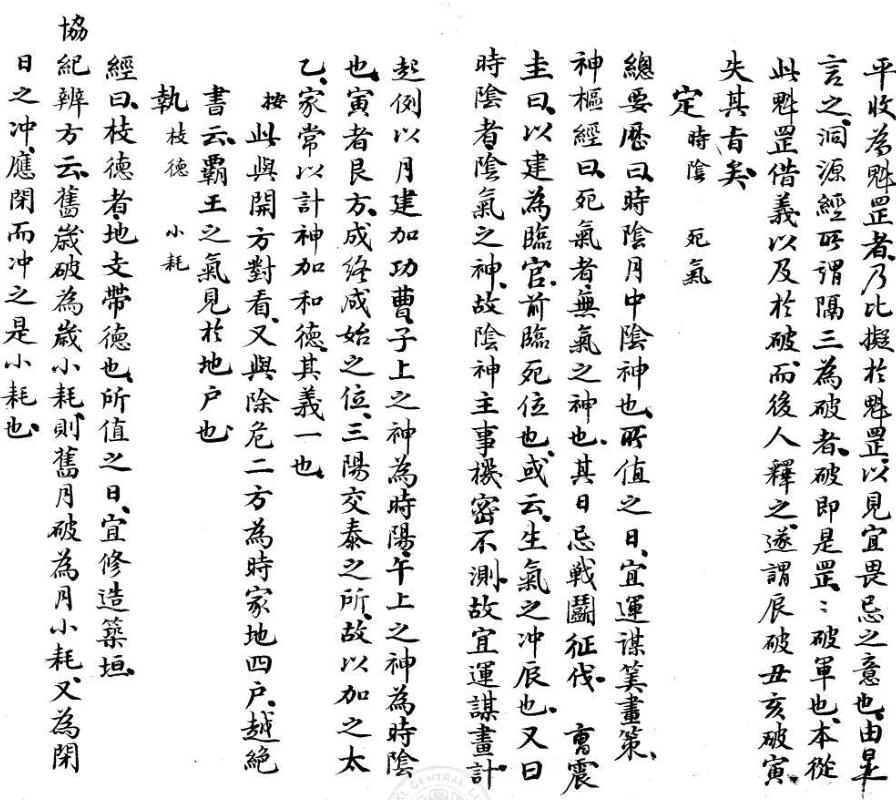 平收為魁罡者、乃比擬於魁罡、以見宜畏忌之意也、由是
言之、洞源經所謂隔三為破者、破即是罡、〻破軍也、本從
此魁罡借義以及於破、而後人釋之、遂謂辰破丑亥破寅、
失其旨矣、
定 時陰 死氣
總要歷曰、時陰月中陰神也、所值之日、宜運謀筭畫策、
神樞經曰、死氣者、無氣之神也、其日忌戰鬪征伐、 曹震
圭曰、以建為臨官、前臨死位也、或云、生氣之冲辰也、又曰
時陰者、陰氣之神、故陰神主事機密不測、故宜運謀畫計
起例以月建加功曹、子上之神為時陽、午上之神為時陰
也、寅者艮方、成終成始之位、三陽交泰之所、故以加之太
乙、家常以計神加和德、其義一也、
按 此與開方對看、又與除危二方為時家地四户、越絕
書云、霸王之氣見於地户也、
執 枝德 小耗
經曰、枝德者、地支帶德也、所值之日、宜修造築垣、
協紀辨方云、舊歲破為歲小耗、則舊月破為月小耗、又為閉
日之冲、應閉而冲之是小耗也、